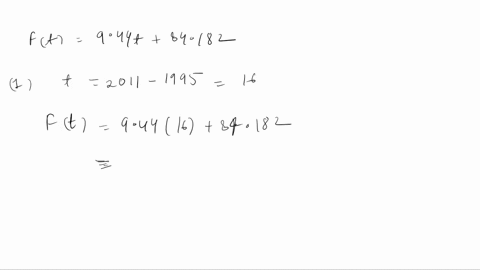 F(t) = 9.44t + 84.182
(1) t = 2011 - 1995 = 16
F(t) = 9.44(16) + 84.182
=